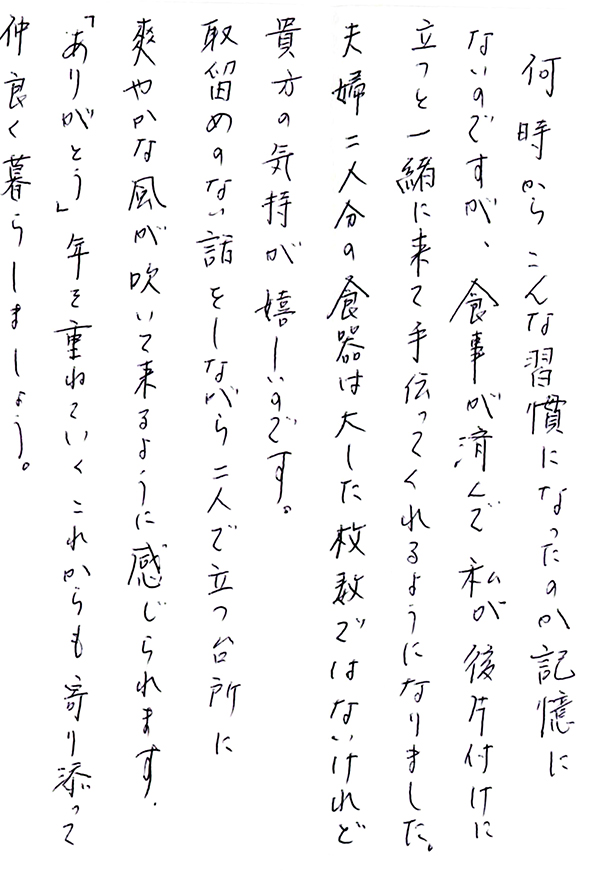 何時からこんな習慣になったのか記憶に
ないのですが、食事が済んで私が後片付けに
立つと一緒に来て手伝ってくれるようになりました。
夫婦二人分の食器は大した枚数ではないけれど
貴方の気持が嬉しいのです。
取留めのない話をしながら二人で立つ台所に
爽やかな風が吹いて来るように感じられます.
「ありがとう」年を重ねていくこれからも寄り添って
仲良く暮らしましょう。